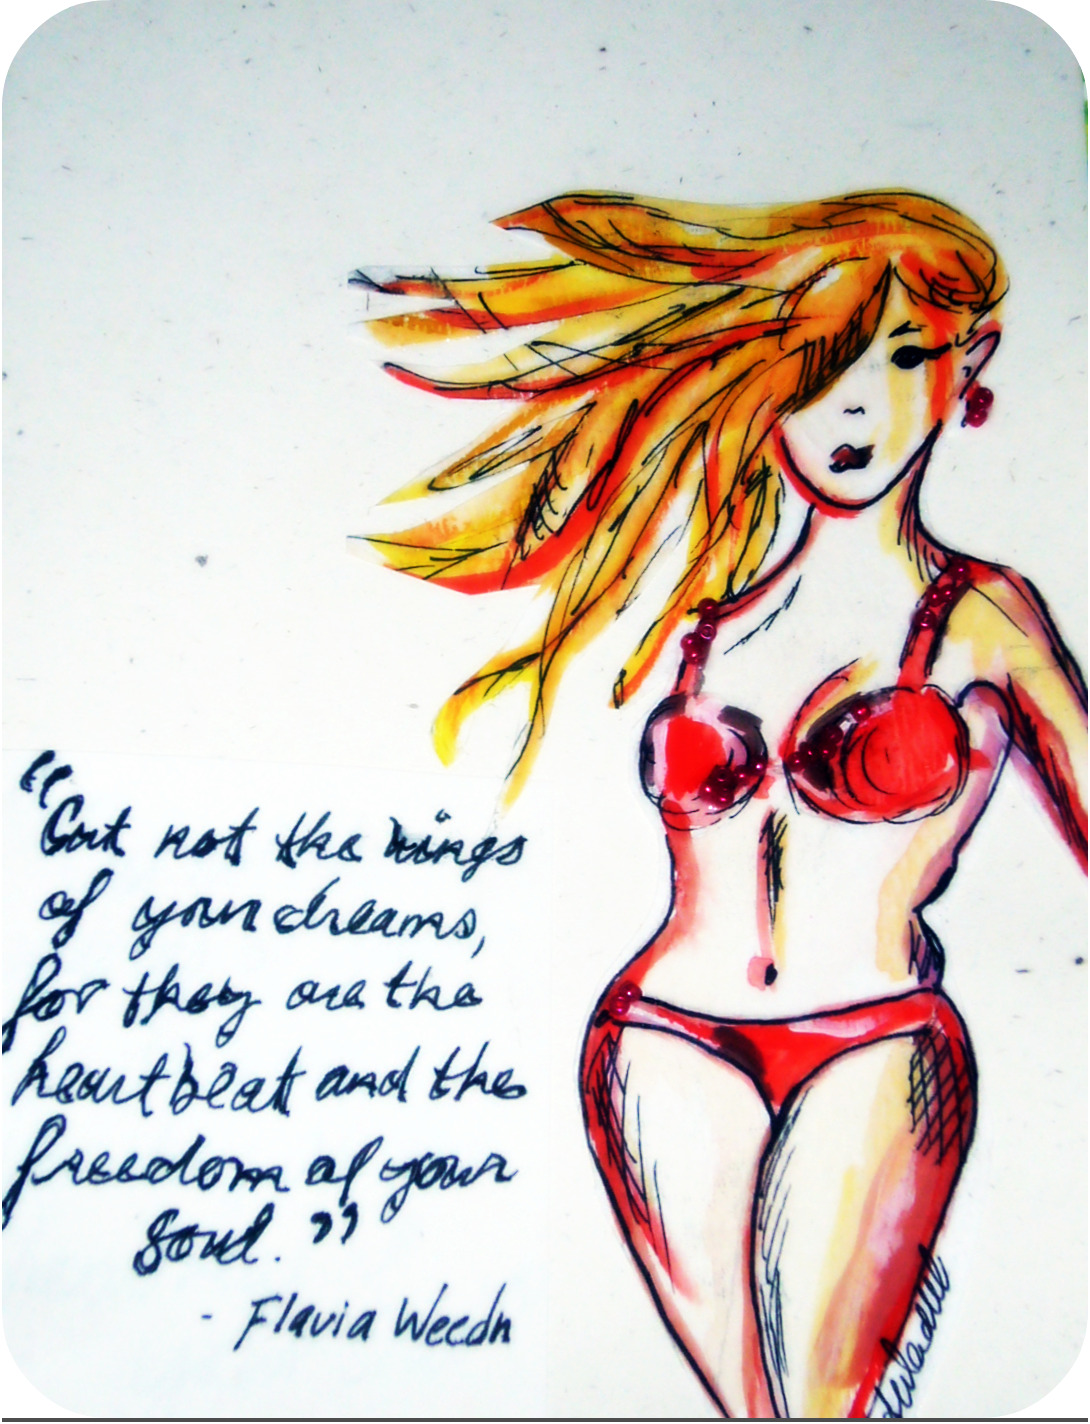 “Cut not the wings
of your dreams,
for they are the
heartbeat and the
freedom of your
soul.”
- Flavia Weedn